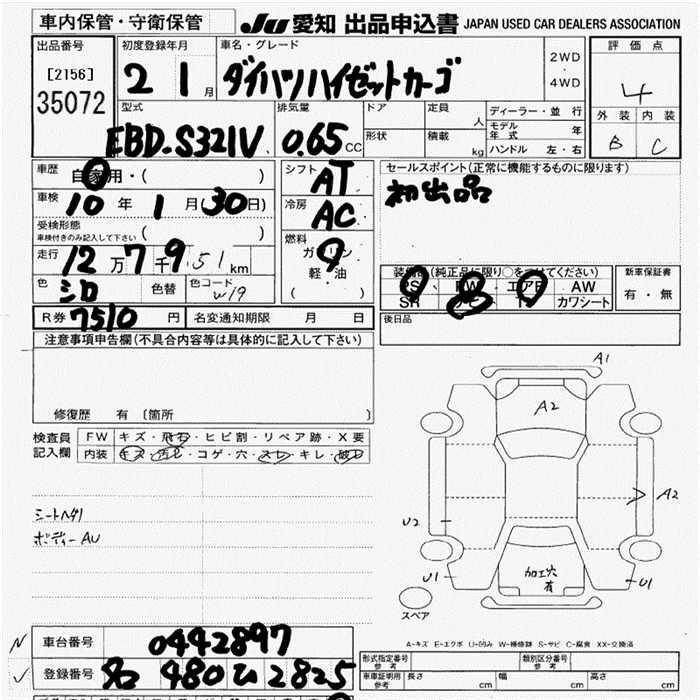 車内保管・守衛保管
JU 愛知 出品申込書 JAPAN USED CAR DEALERS ASSOCIATION
出品番号 [2156] 35072
初度登録年月 2 1月
車名・グレード ダイハツハイゼットカーゴ
2WD ・ 4WD
評価点 4
外装 内装
B C
型式 EBD-S321V
排気量 0.65cc
ドア 定員 人
形状 積載 kg
ディーラー・並行
モデル年式 年
ハンドル 左・右
車歴 自家用・( )
車検 10年 1月(30日)
受検形態
車検付きのみ記入して下さい ( )
走行 12万7千951km
色 シロ 色替 色コード W19
R券 7510円 名変通知期限 月 日
シフト AT
冷房 AC
燃料 ガソリン
軽・油
( )
セールスポイント(正常に機能するものに限ります)
初出品
装備品(純正品に限り○をつけてください)
PS PW エアB AW
SR ナビ TV カワシート
新車保証書
有・無
後日品
注意事項申告欄(不具合内容等は具体的に記入して下さい)
修復歴 有〔箇所 〕
検査員記入欄
FW キズ・飛石・ヒビ割・リペア跡・X要
内装 キズ・汚レ・コゲ・穴・スレ・キレ・破レ
シートヘタリ
ボディーAU
A1
A2
A2
U2
U1
U1
加工穴有
スペア
A-キズ E-エクボ U-凹み W-補修跡 S-サビ C-腐食 XX-交換済
車台番号 0442897
登録番号 名 480 ひ 2825
形式指定番号 参考 類別区分番号 参考
車庫証明用 参考 長さ cm 幅 cm 高さ cm